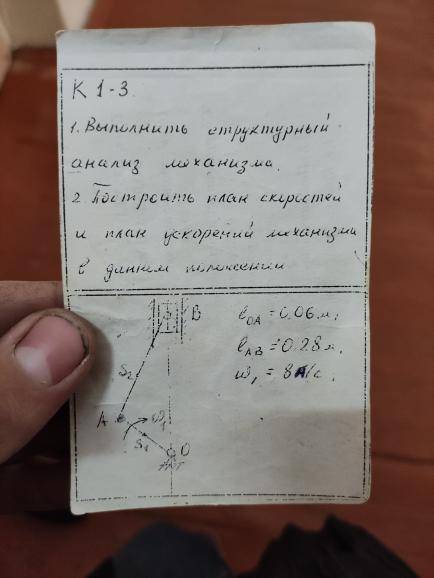 К 1-3.
1. Выполнить структурный
анализ механизма.
2. Построить план скоростей
и план ускорений механизма
в данном положении
B
ℓOA = 0.06 м,
ℓAB = 0.28 м,
ω₁ = 8 1/с.
S₂
A
ω₁
S₁
O